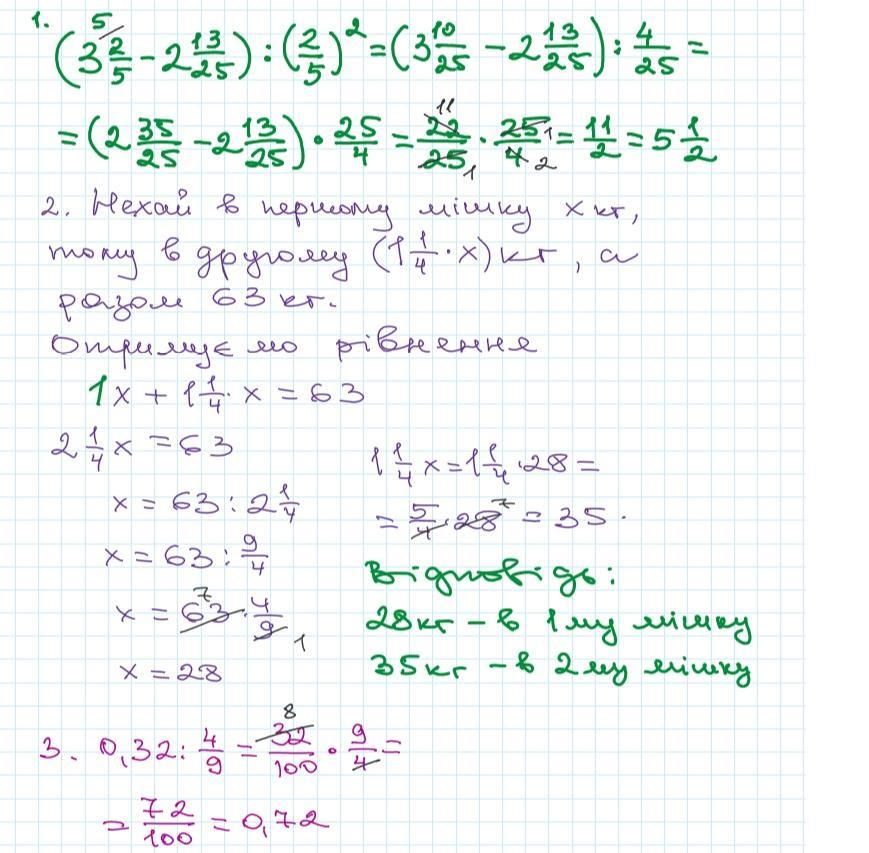 1. (3 2/5 - 2 13/25) : (2/5)² = (3 10/25 - 2 13/25) : 4/25 =
= (2 35/25 - 2 13/25) · 25/4 = 22/25 · 25/4 = 11/2 = 5 1/2
2. Нехай в першому мішку x кг,
тому в другому (1 1/4 · x) кг, а
разом 63 кг.
Отримуємо рівнення
1x + 1 1/4 · x = 63
2 1/4 x = 63
x = 63 : 2 1/4
x = 63 : 9/4
x = 63 · 4/9
x = 28
1 1/4 x = 1 1/4 · 28 =
= 5/4 · 28 = 35.
Відповідь:
28кг - в 1му мішку
35кг - в 2му мішку
3. 0,32 : 4/9 = 32/100 · 9/4 =
= 72/100 = 0,72